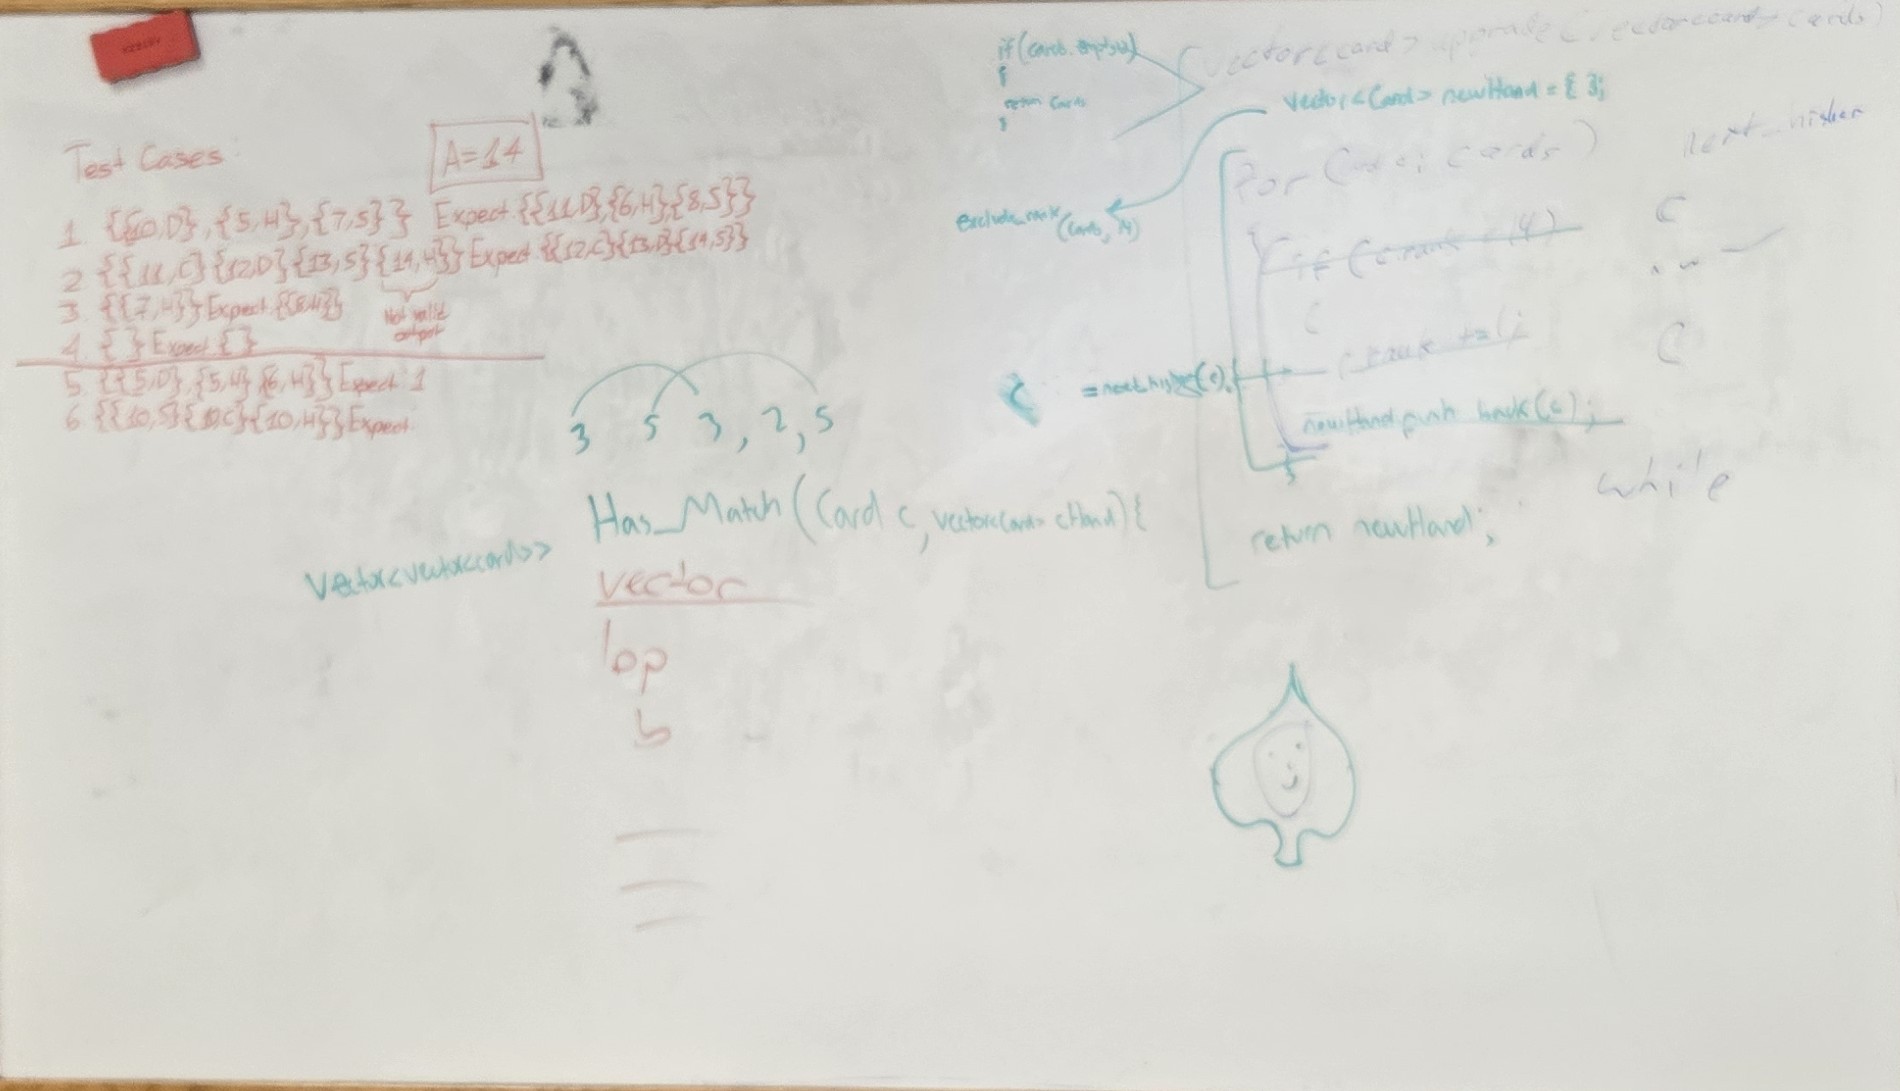 Test Cases
A=14
1 {{10,D},{5,H},{7,S}} Expect {{11,D},{6,H},{8,S}}
2 {{11,C}{12,D}{13,S}{14,H}} Expect {{12,C}{13,D}{14,S}}
3 {{7,H}} Expect {{8,H}}
Not valid
output
4 { } Expect { }
5 {{5,D},{5,H},{6,H}} Expect 1
6 {{10,S}{10,C}{10,H}} Expect
3 5 3, 2, 5
Has_Match(Card c, vector<Card> cHand){
vector<vector<card>>
vector
lop
b
if(cards.empty())
{
return cards
}
vector<card> upgrade(vector<card> cards)
vector<Card> newHand = { };
next_higher
for ( cards)
exclude_rank
(cards, 14)
if (c.rank 14)
C
{
c.rank += 1;
C
C = next_higher(c);
newHand.push_back(c);
}
while
return newHand;